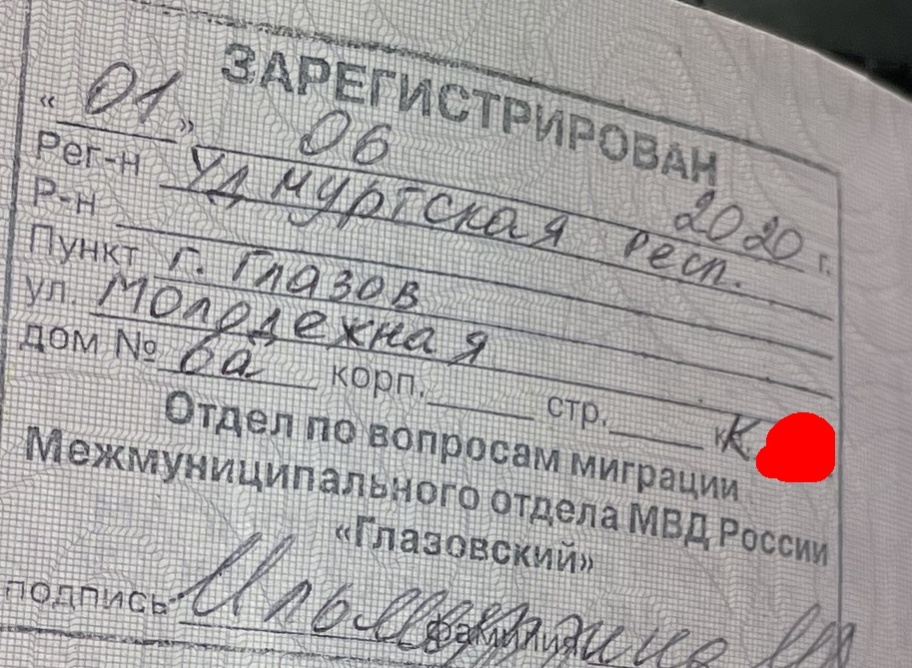 ЗАРЕГИСТРИРОВАН
« 01 » 06 2020 г.
Рег-н Удмуртская респ.
Р-н
Пункт г. Глазов
ул. Молодежная
дом № 6а корп. стр. к
Отдел по вопросам миграции
Межмуниципального отдела МВД России
«Глазовский»
подпись